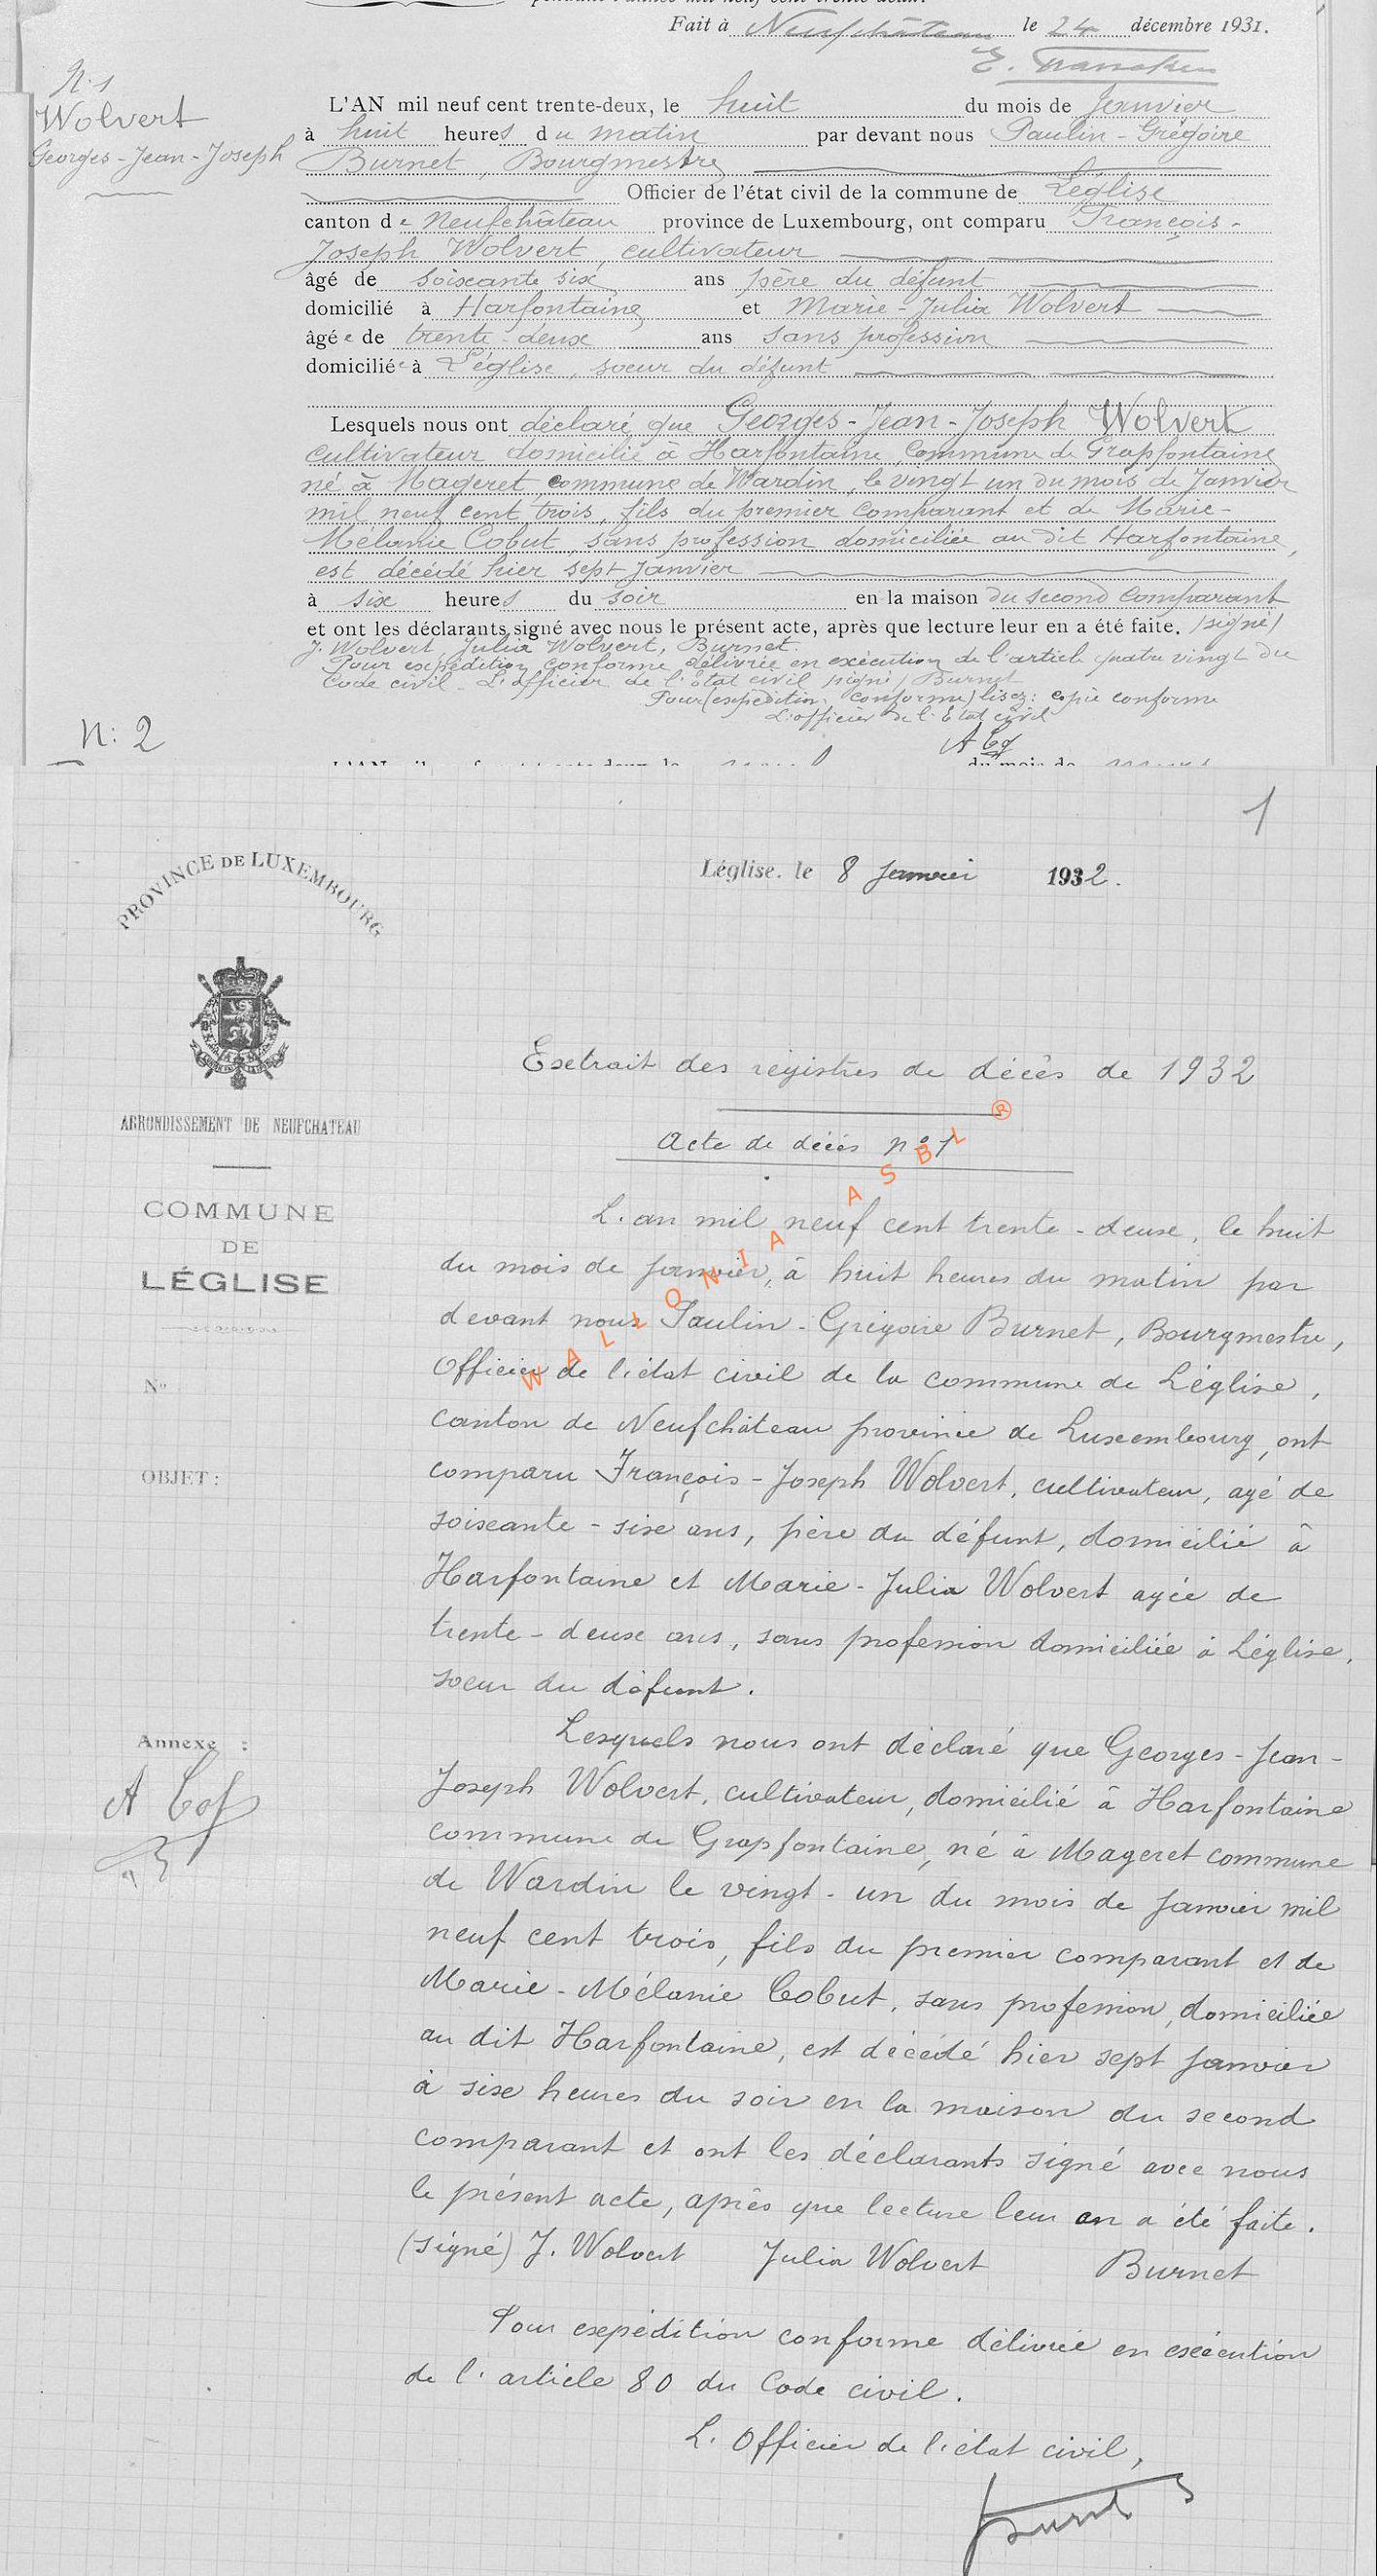 Fait à Neufchâteau le 24 décembre 1931.
N. 1
Wolvert
Georges-Jean-Joseph
L'AN mil neuf cent trente-deux, le huit du mois de Janvier
à huit heures du matin par devant nous Paulin-Grégoire
Burnet, Bourgmestre
Officier de l'état civil de la commune de Léglise
canton de Neufchâteau province de Luxembourg, ont comparu François-
Joseph Wolvert, cultivateur
âgé de soixante six ans père du défunt
domicilié à Harfontaine et Marie-Julia Wolvert
âgée de trente-deux ans sans profession
domiciliée à Léglise, soeur du défunt
Lesquels nous ont déclaré que Georges-Jean-Joseph Wolvert
cultivateur domicilié à Harfontaine, Commune de Grapfontaine
né à Mageret, commune de Wardin, le vingt un du mois de Janvier
mil neuf cent trois, fils du premier comparant et de Marie-
Mélanie Cobut, sans profession domiciliée au dit Harfontaine,
est décédé hier sept Janvier
à six heures du soir en la maison du second comparant
et ont les déclarants signé avec nous le présent acte, après que lecture leur en a été faite. (signé)
J. Wolvert, Julia Wolvert, Burnet.
Pour expédition conforme délivrée en exécution de l'article quatre vingt du
Code civil. L'officier de l'Etat civil (signé) Burnet
Pour (expédition conforme) lisez: copie conforme
L'officier de l'Etat civil
N: 2
du mois de mars
1
PROVINCE DE LUXEMBOURG
Léglise, le 8 janvier 1932.
Extrait des registres de décès de 1932
ARRONDISSEMENT DE NEUFCHATEAU
Acte de décès n° 1
WALLONIA ASBL ®
COMMUNE
DE
LÉGLISE
N°
OBJET :
L'an mil neuf cent trente-deux, le huit
du mois de janvier, à huit heures du matin par
devant nous Paulin-Grégoire Burnet, Bourgmestre,
Officier de l'état civil de la commune de Léglise,
canton de Neufchâteau province de Luxembourg, ont
comparu François-Joseph Wolvert, cultivateur, agé de
soixante-six ans, père du défunt, domicilié à
Harfontaine et Marie-Julia Wolvert agée de
trente-deux ans, sans profession domiciliée à Léglise,
soeur du défunt.
Lesquels nous ont déclaré que Georges-Jean-
Joseph Wolvert, cultivateur, domicilié à Harfontaine
commune de Grapfontaine, né à Mageret commune
de Wardin le vingt-un du mois de janvier mil
neuf cent trois, fils du premier comparant et de
Marie-Mélanie Cobut, sans profession, domiciliée
au dit Harfontaine, est décédé hier sept janvier
à six heures du soir en la maison du second
comparant et ont les déclarants signé avec nous
le présent acte, après que lecture leur en a été faite.
(signé) J. Wolvert Julia Wolvert Burnet
Pour expédition conforme délivrée en exécution
de l'article 80 du Code civil.
L'Officier de l'état civil,
Annexe :